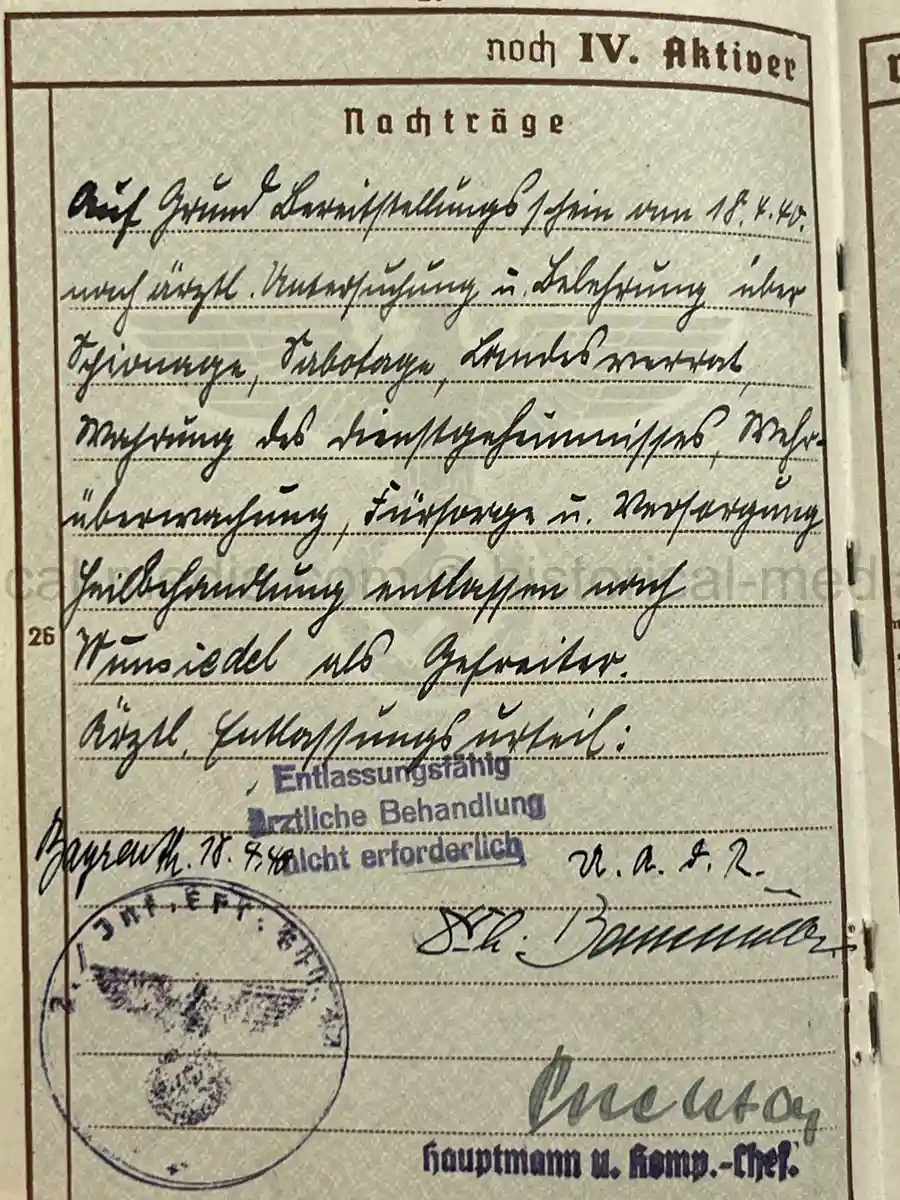 noch IV. Aktiver
Nachträge
Auf Grund Bereitstellungsschein am 18.4.40.
nach ärztl. Untersuchung u. Belehrung über
Spionage, Sabotage, Landesverrat,
Wahrung des Dienstgeheimnisses, Wehr-
überwachung, Fürsorge u. Versorgung
Heilbehandlung entlassen nach
26
Wunsiedel als Gefreiter.
Ärztl. Entlassungsurteil:
Entlassungsfähig
ärztliche Behandlung
nicht erforderlich
Bayreuth. 18. 4. 40
2. / Inf. Ers.
Hauptmann u. Komp.-Chef.